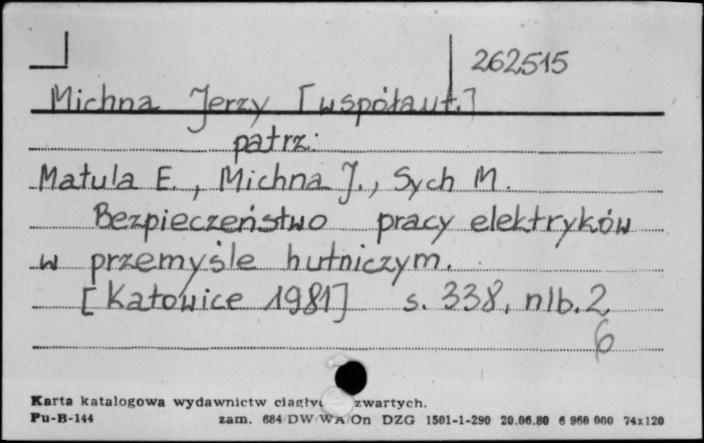 262515
Michna Jerzy [współaut.]
patrz:
Matula E., Michna J., Sych M.
Bezpieczeństwo pracy elektryków
w przemyśle hutniczym.
[Katowice 1981] s. 338, nlb. 2
6
Karta katalogowa wydawnictw ciągły zwartych.
Pu-B-144 zam. 684/DW/WA/On DZG 1501-1-290 20.06.80 6 966 000 74x120